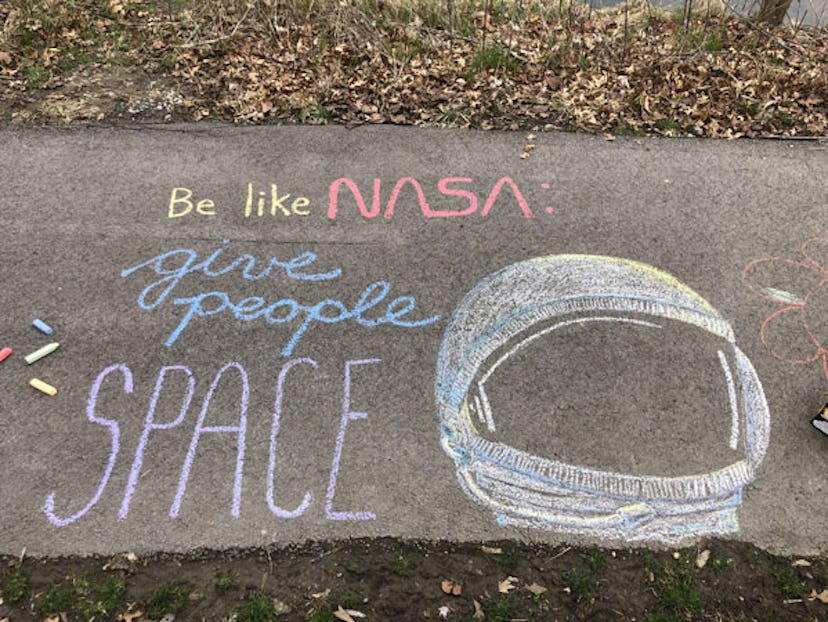 Be like NASA:
give
people
SPACE